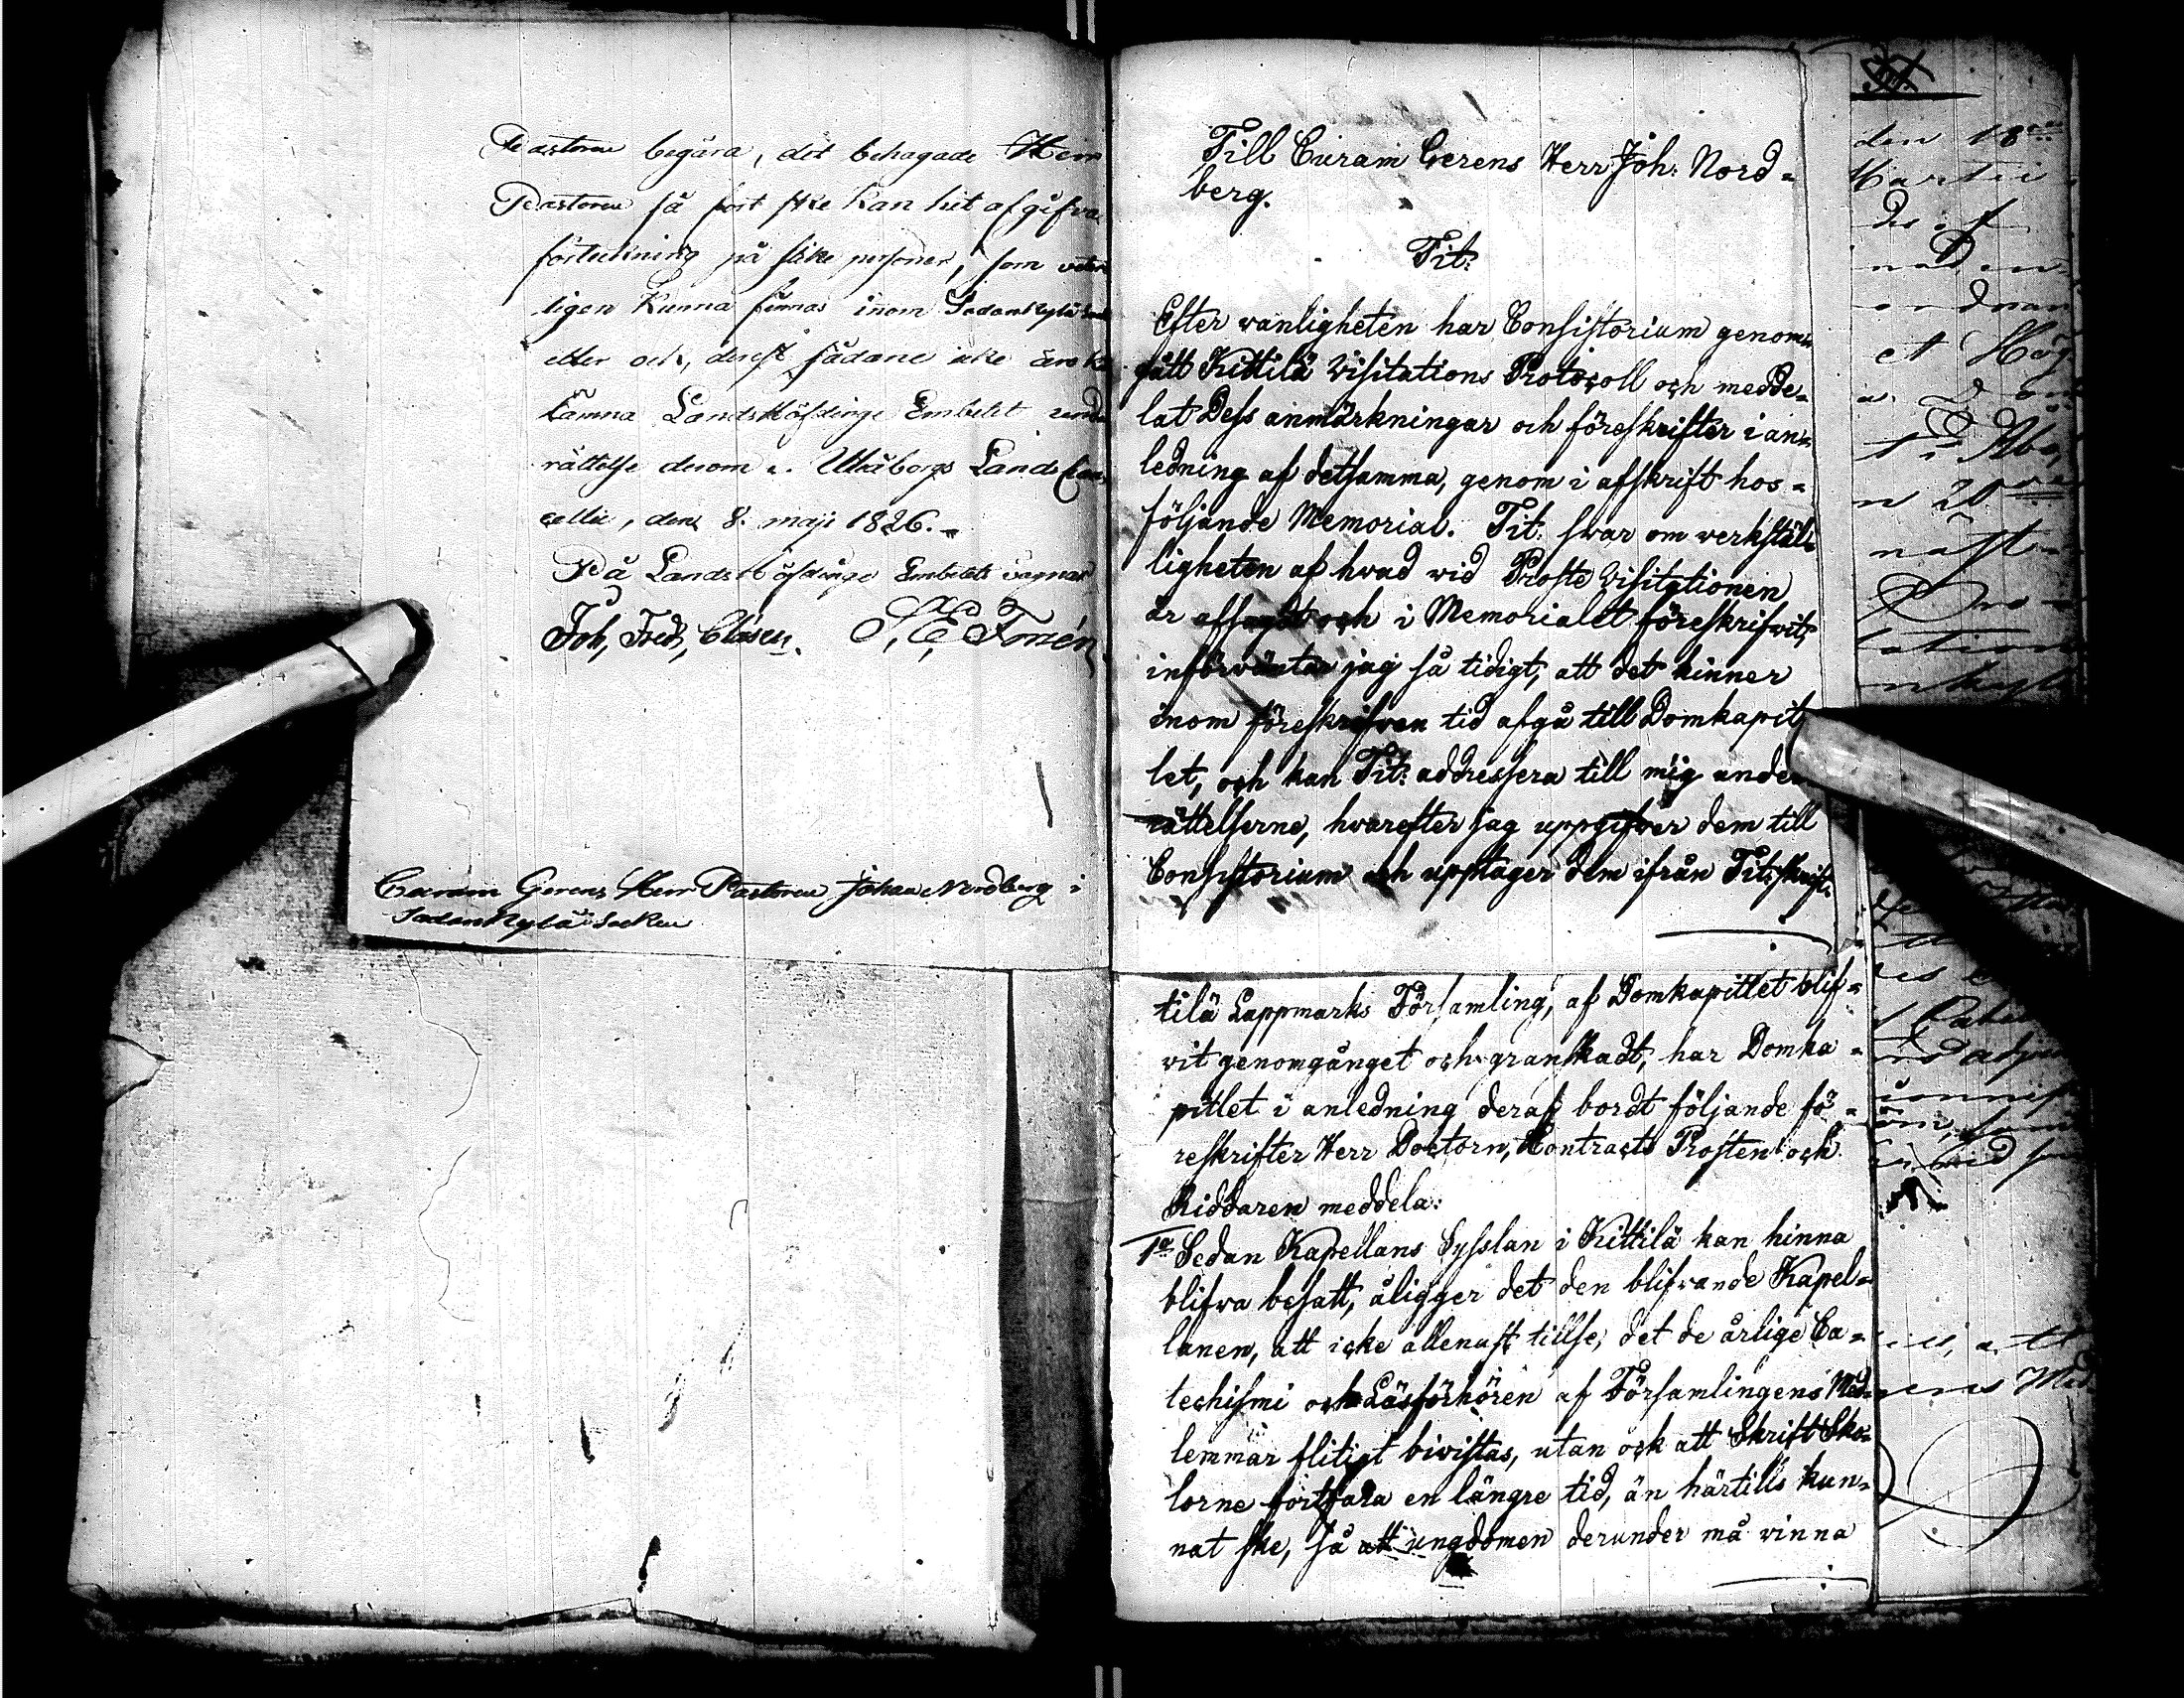 Pastorn begära, det behagade Herr
Pastorn så fort ske kan hit afgifva
förtekning på slike personer, som veter
ligen kunna finnas inom Sodankylä
eller och, derest sådane icke äro
lämna Landshöfdinge Embetet unde
rättelse derom. Uleåborgs Lands Can
cellie, den 8. maji 1826.
På Landshöfdinge Embetets vägnar
Joh, Fred, Clásen.
Curam Gerens Herr Pastoren Johan Nordberg i
Sodankylä Socken
Till Curam Gerens Herr Joh: Nord=
berg.
Tit:
Efter vanligheten har Consistorium genom=
gått Kittilä Visitations Protocoll och medde=
lat Dess anmärkningar och föreskrifter i an=
ledning af detsamma, genom i afskrift hos=
följande Memorial. Tit: svar om verkstäl=
ligheten af hvad vid Proste Visitationen
är afsagdt och i Memorialet föreskrifvit,
införväntar jag så tidigt, att det hinner
inom föreskrifven tid afgå till Domkapit
let, och kan Tit: addressera till mig under
rättelserne, hvarefter jag uppgifver dem till
Consistorium och upptager dem ifrån Tit: skrift:
tilä Lappmarks Församling, af Domkapitlet blif=
vit genomgånget och granskadt, har Domka=
pitlet i anledning deraf bordt följande fö=
reskrifter Herr Doctorn, Kontracts Prosten och
Riddaren meddela:
1o Sedan Kapellans Sysslan i Kittilä kan hinna
blifva besatt, åligger det den blifvande Kapel=
lanen, att icke allenast tillse, det de årlige Ca=
techismi och Läsförhören af Församlingens Med=
lemmar flitigt bivistas, utan ock att Skrift Sko=
lorne fortfara en längre tid, än härtills kun=
nat ske, så att ungdomen derunder må vinna
den 18
Martii
et Hög
Åbo,
n 20